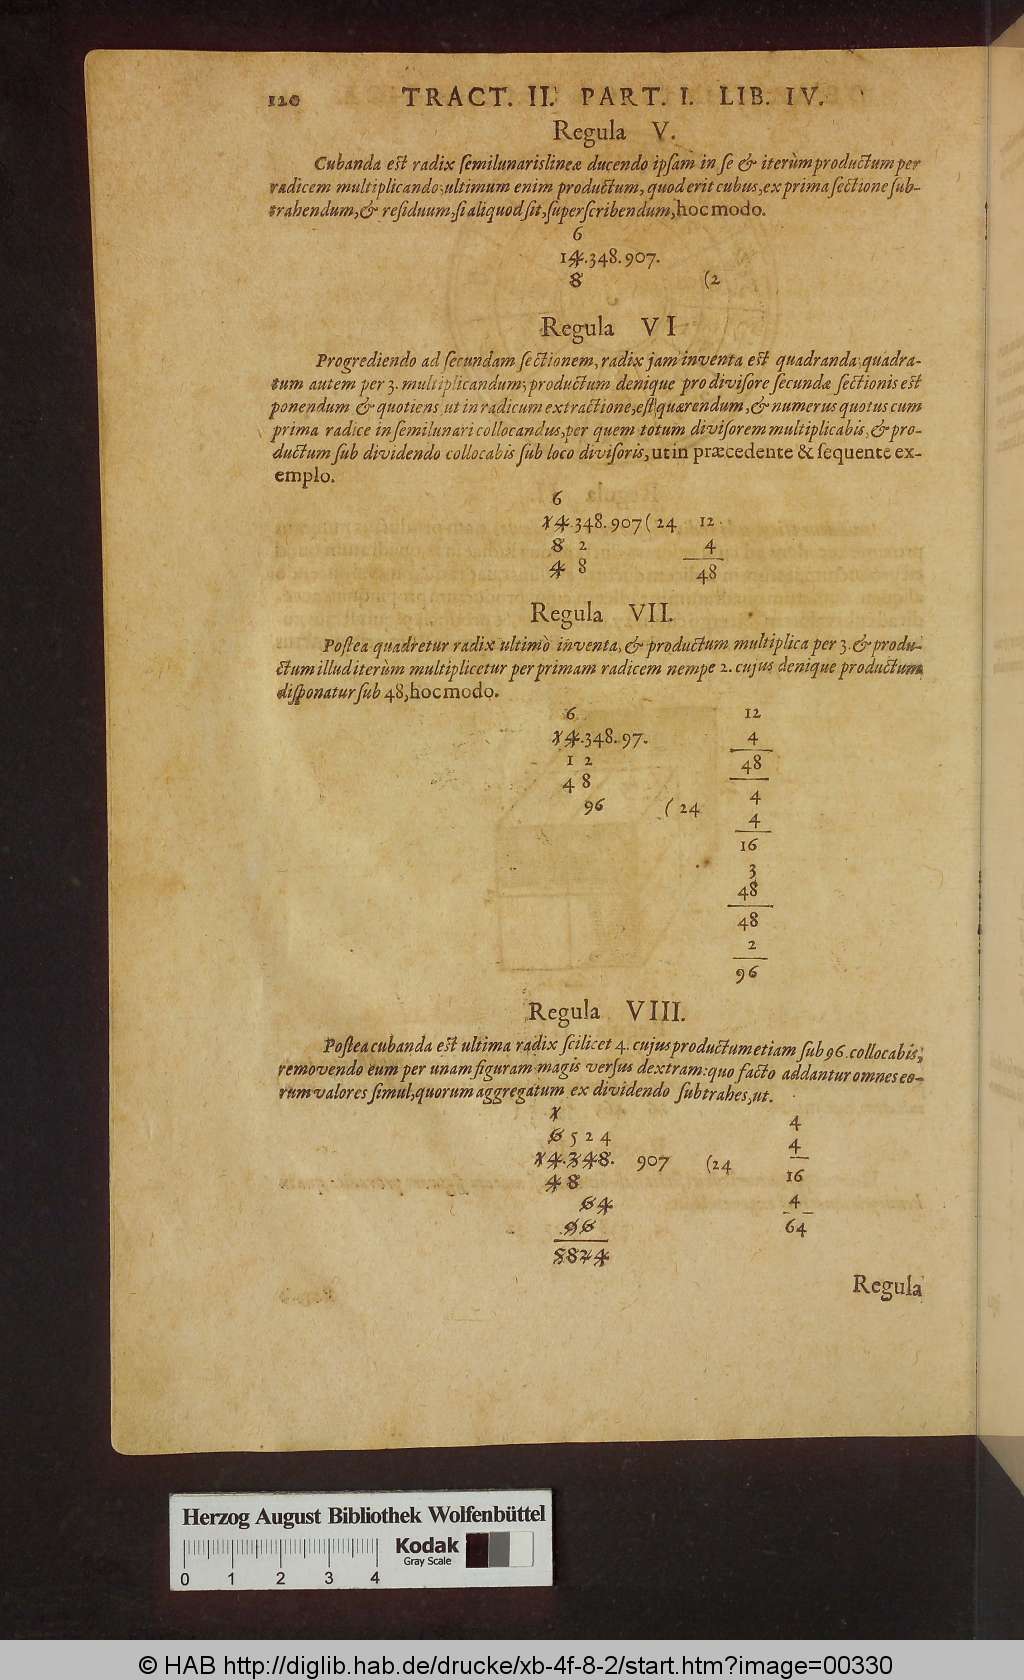 120 TRACT. II. PART. I. LIB. IV.
Regula V.
Cubanda est radix ſemilunaris lineæ ducendo ipſam in ſe & iterùm productum per
radicem multiplicando; ultimum enim productum, quod erit cubus, ex prima ſectione ſub-
trahendum, & reſiduum, ſi aliquod ſit, ſuperſcribendum, hoc modo.
6
14.348.907.
8 (2
Regula VI
Progrediendo ad ſecundam ſectionem, radix jam inventa est quadranda; quadra-
tum autem per 3. multiplicandum; productum denique pro diviſore ſecundæ ſectionis est
ponendum & quotiens ut in radicum extractione, eſt quærendum, & numerus quotus cum
prima radice in ſemilunari collocandus, per quem totum diviſorem multiplicabis, & pro-
ductum ſub dividendo collocabis ſub loco diviſoris, ut in præcedente & ſequente ex-
emplo.
6
14.348.907 (24 12
8 2 4
4 8 48
Regula VII.
Poſtea quadretur radix ultimò inventa, & productum multiplica per 3. & produ-
ctum illud iterùm multiplicetur per primam radicem nempe 2. cujus denique productum
diſponatur ſub 48, hoc modo.
6 12
14.348.97. 4
1 2 48
4 8
96 (24 4
4
16
3
48
48
2
96
Regula VIII.
Poſtea cubanda est ultima radix ſcilicet 4. cujus productum etiam ſub 96. collocabis,
removendo eum per unam figuram magis verſus dextram: quo facto addantur omnes eo-
rum valores ſimul, quorum aggregatum ex dividendo ſubtrahes, ut.
1 4
6 5 2 4 4
14.348. 907 (24 16
4 8 4
64 64
96
5824
Regula
Herzog August Bibliothek Wolfenbüttel
Kodak
Gray Scale
0 1 2 3 4
© HAB http://diglib.hab.de/drucke/xb-4f-8-2/start.htm?image=00330